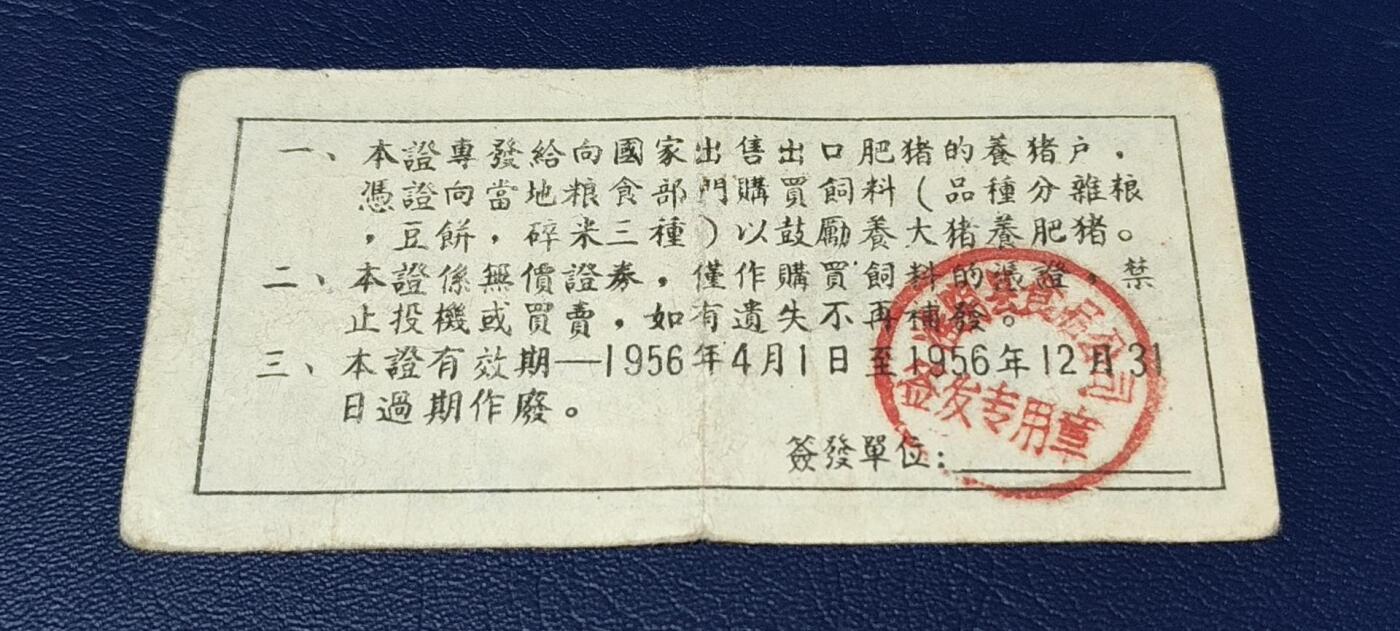 一、本證專發給向國家出售出口肥猪的養猪户，
憑證向當地粮食部門購買飼料（品種分雜粮
，豆餅，碎米三種）以鼓勵養大猪養肥猪。
二、本證係無價證券，僅作購買飼料的憑證，禁
止投機或買賣，如有遺失不再補發。
三、本證有效期—1956年4月1日至1956年12月31
日過期作廢。
簽發單位：
县食品公司
签发专用章